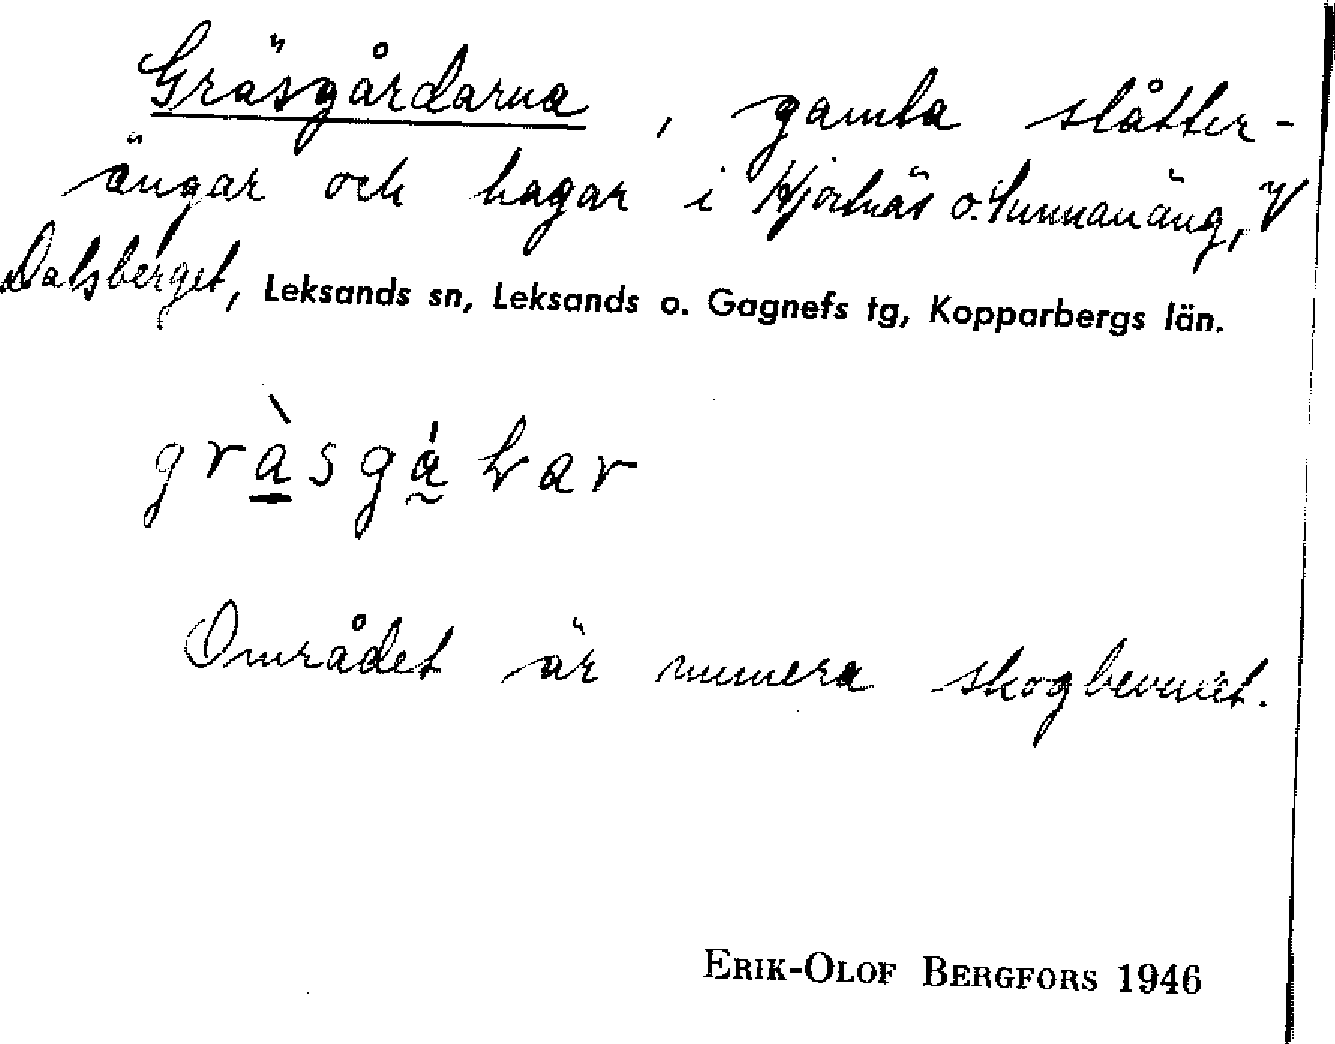 Gräsgårdarna, gamla slåtter-
ängar och hagar i Hjortnäs o. Sunnanäng, V
Dalsberget, Leksands sn, Leksands o. Gagnefs tg, Kopparbergs län.
Området är numera skogbevuxet.
ERIK-OLOF BERGFORS 1946